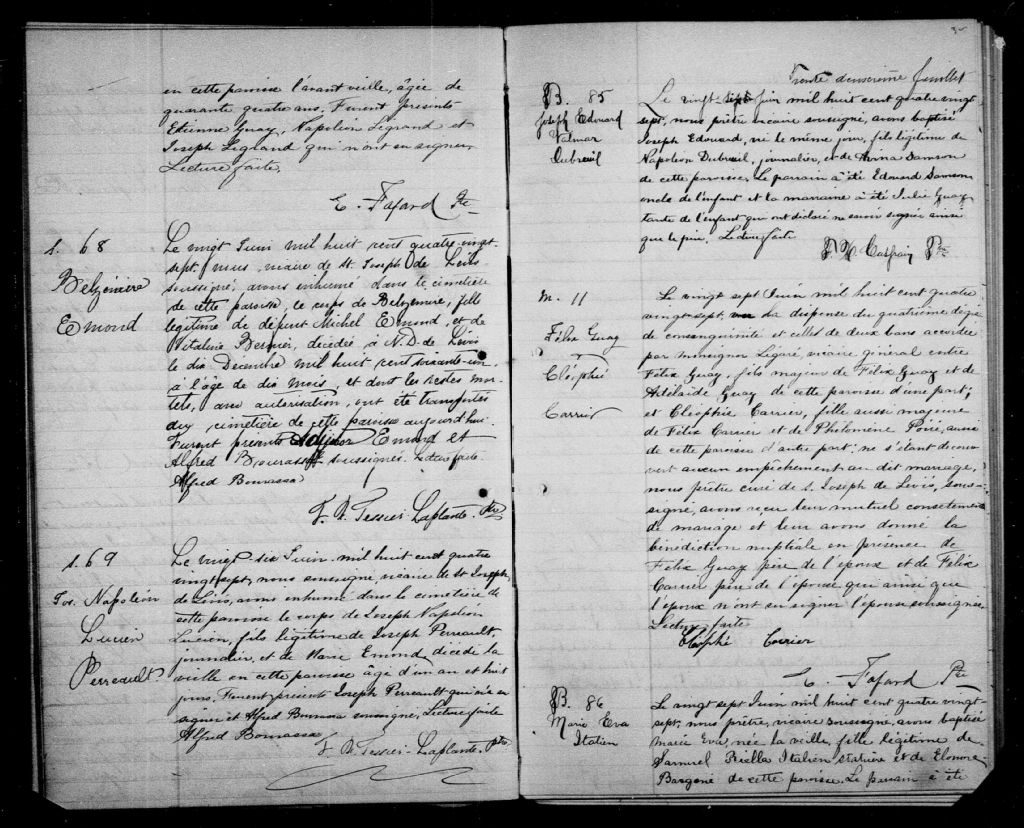 en cette paroisse l'avant veille, âgée de
quarante quatre ans. Furent présents
Etienne Guay, Napoléon Légrand et
Joseph Legrand qui n'ont su signer.
Lecture faite.
E. Fafard Ptr
S. 68
Belzémire
Emond
Le vingt Juin mil huit cent quatre-vingt
sept, nous, vicaire de St. Joseph de Lévis
soussigné, avons inhumé dans le cimetière
de cette paroisse, le corps de Belzémire, fille
légitime de défunt Michel Emond, et de
Vitaline Bernier, décédée à N.D. de Lévis
le dix Décembre mil huit cent soixante-un
à l'âge de dix mois, et dont les restes mor-
tels, avec autorisation, ont été transportés
du cimetière de cette paroisse aujourd'hui.
Furent présents Emond et
Alfred Bourassa soussignés. Lecture faite.
Alfred Bourassa
F. X. Tessier-Laplante, Ptre
S. 69
Jos. Napoléon
Lucien
Perreault
Le vingt six Juin mil huit cent quatre
vingt sept, nous soussigné, vicaire de St Joseph
de Lévis, avons inhumé dans le cimetière de
cette paroisse le corps de Joseph Napoléon
Lucien, fils légitime de Joseph Perreault,
journalier, et de Marie Emond, décédé la
veille en cette paroisse âgé d'un an et huit
jours. Furent présents Joseph Perreault qui n'a su
signer et Alfred Bourassa soussigné. Lecture faite
Alfred Bourassa
F. X. Tessier-Laplante, Ptre
Trente deuxième feuillet
B. 85
Joseph Edouard
Valmor
Dubreuil
Le vingt-sept Juin mil huit cent quatre vingt
sept, nous prêtre vicaire soussigné, avons baptisé
Joseph Edouard, né le même jour, fils légitime de
Napoléon Dubreuil, journalier, et de Anna Samson
de cette paroisse. Le parrain a été Edouard Samson
oncle de l'enfant et la marraine a été Julie Guay
tante de l'enfant qui ont déclaré ne savoir signer ainsi
que le père. Lecture faite
Ptre
M. 11
Félix Guay
&
Cléophé
Carrier
Le vingt sept Juin mil huit cent quatre
vingt-sept, vu la dispense du quatrième degré
de consanguinité et celles de deux bans accordée
par monsignor Légaré, vicaire général entre
Félix Guay, fils majeur de Félix Guay et de
Adélaïde Guay de cette paroisse d'une part;
et Cléophée Carrier, fille aussi majeure
de Félix Carrier et de Philomène Poiré, aussi
de cette paroisse d'autre part; ne s'étant décou-
vert aucun empêchement au dit mariage,
nous prêtre curé de S. Joseph de Lévis, sous-
signé, avons reçu leur mutuel consentement
de mariage et leur avons donné la
bénédiction nuptiale en présence de
Félix Guay père de l'époux et de Félix
Carrier père de l'épouse qui ainsi que
l'époux n'ont su signer l'épouse soussignée.
Lecture faite
Cléophé Carrier
E. Fafard Ptre
B. 86
Marie Eva
Italien
Le vingt sept Juin mil huit cent quatre vingt-
sept, nous prêtre, vicaire soussigné, avons baptisé
Marie Eva, née la veille, fille légitime de
Samuel Riella Italien statuaire et de Elonore
Bargone de cette paroisse. Le parrain a été